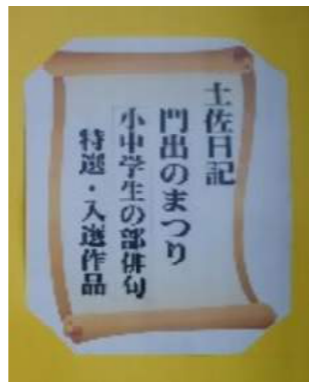 土佐日記
門出のまつり
小中学生の部俳句
特選・入選作品